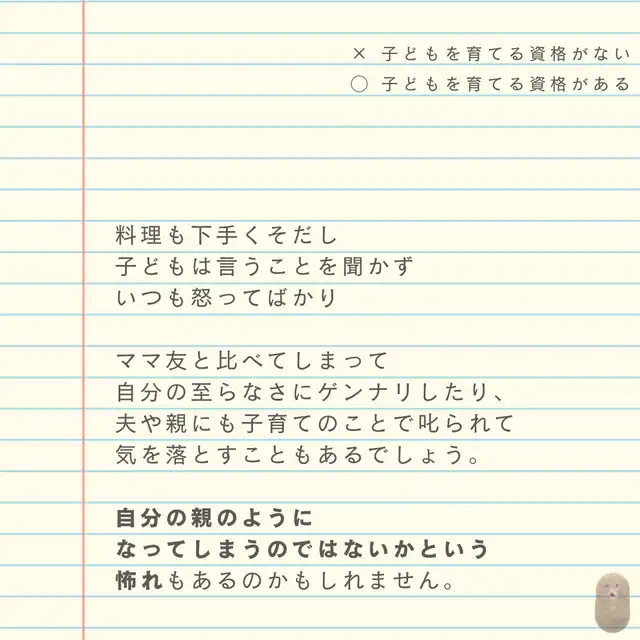 × 子どもを育てる資格がない
○ 子どもを育てる資格がある
料理も下手くそだし
子どもは言うことを聞かず
いつも怒ってばかり
ママ友と比べてしまって
自分の至らなさにゲンナリしたり、
夫や親にも子育てのことで叱られて
気を落とすこともあるでしょう。
自分の親のように
なってしまうのではないかという
怖れもあるのかもしれません。